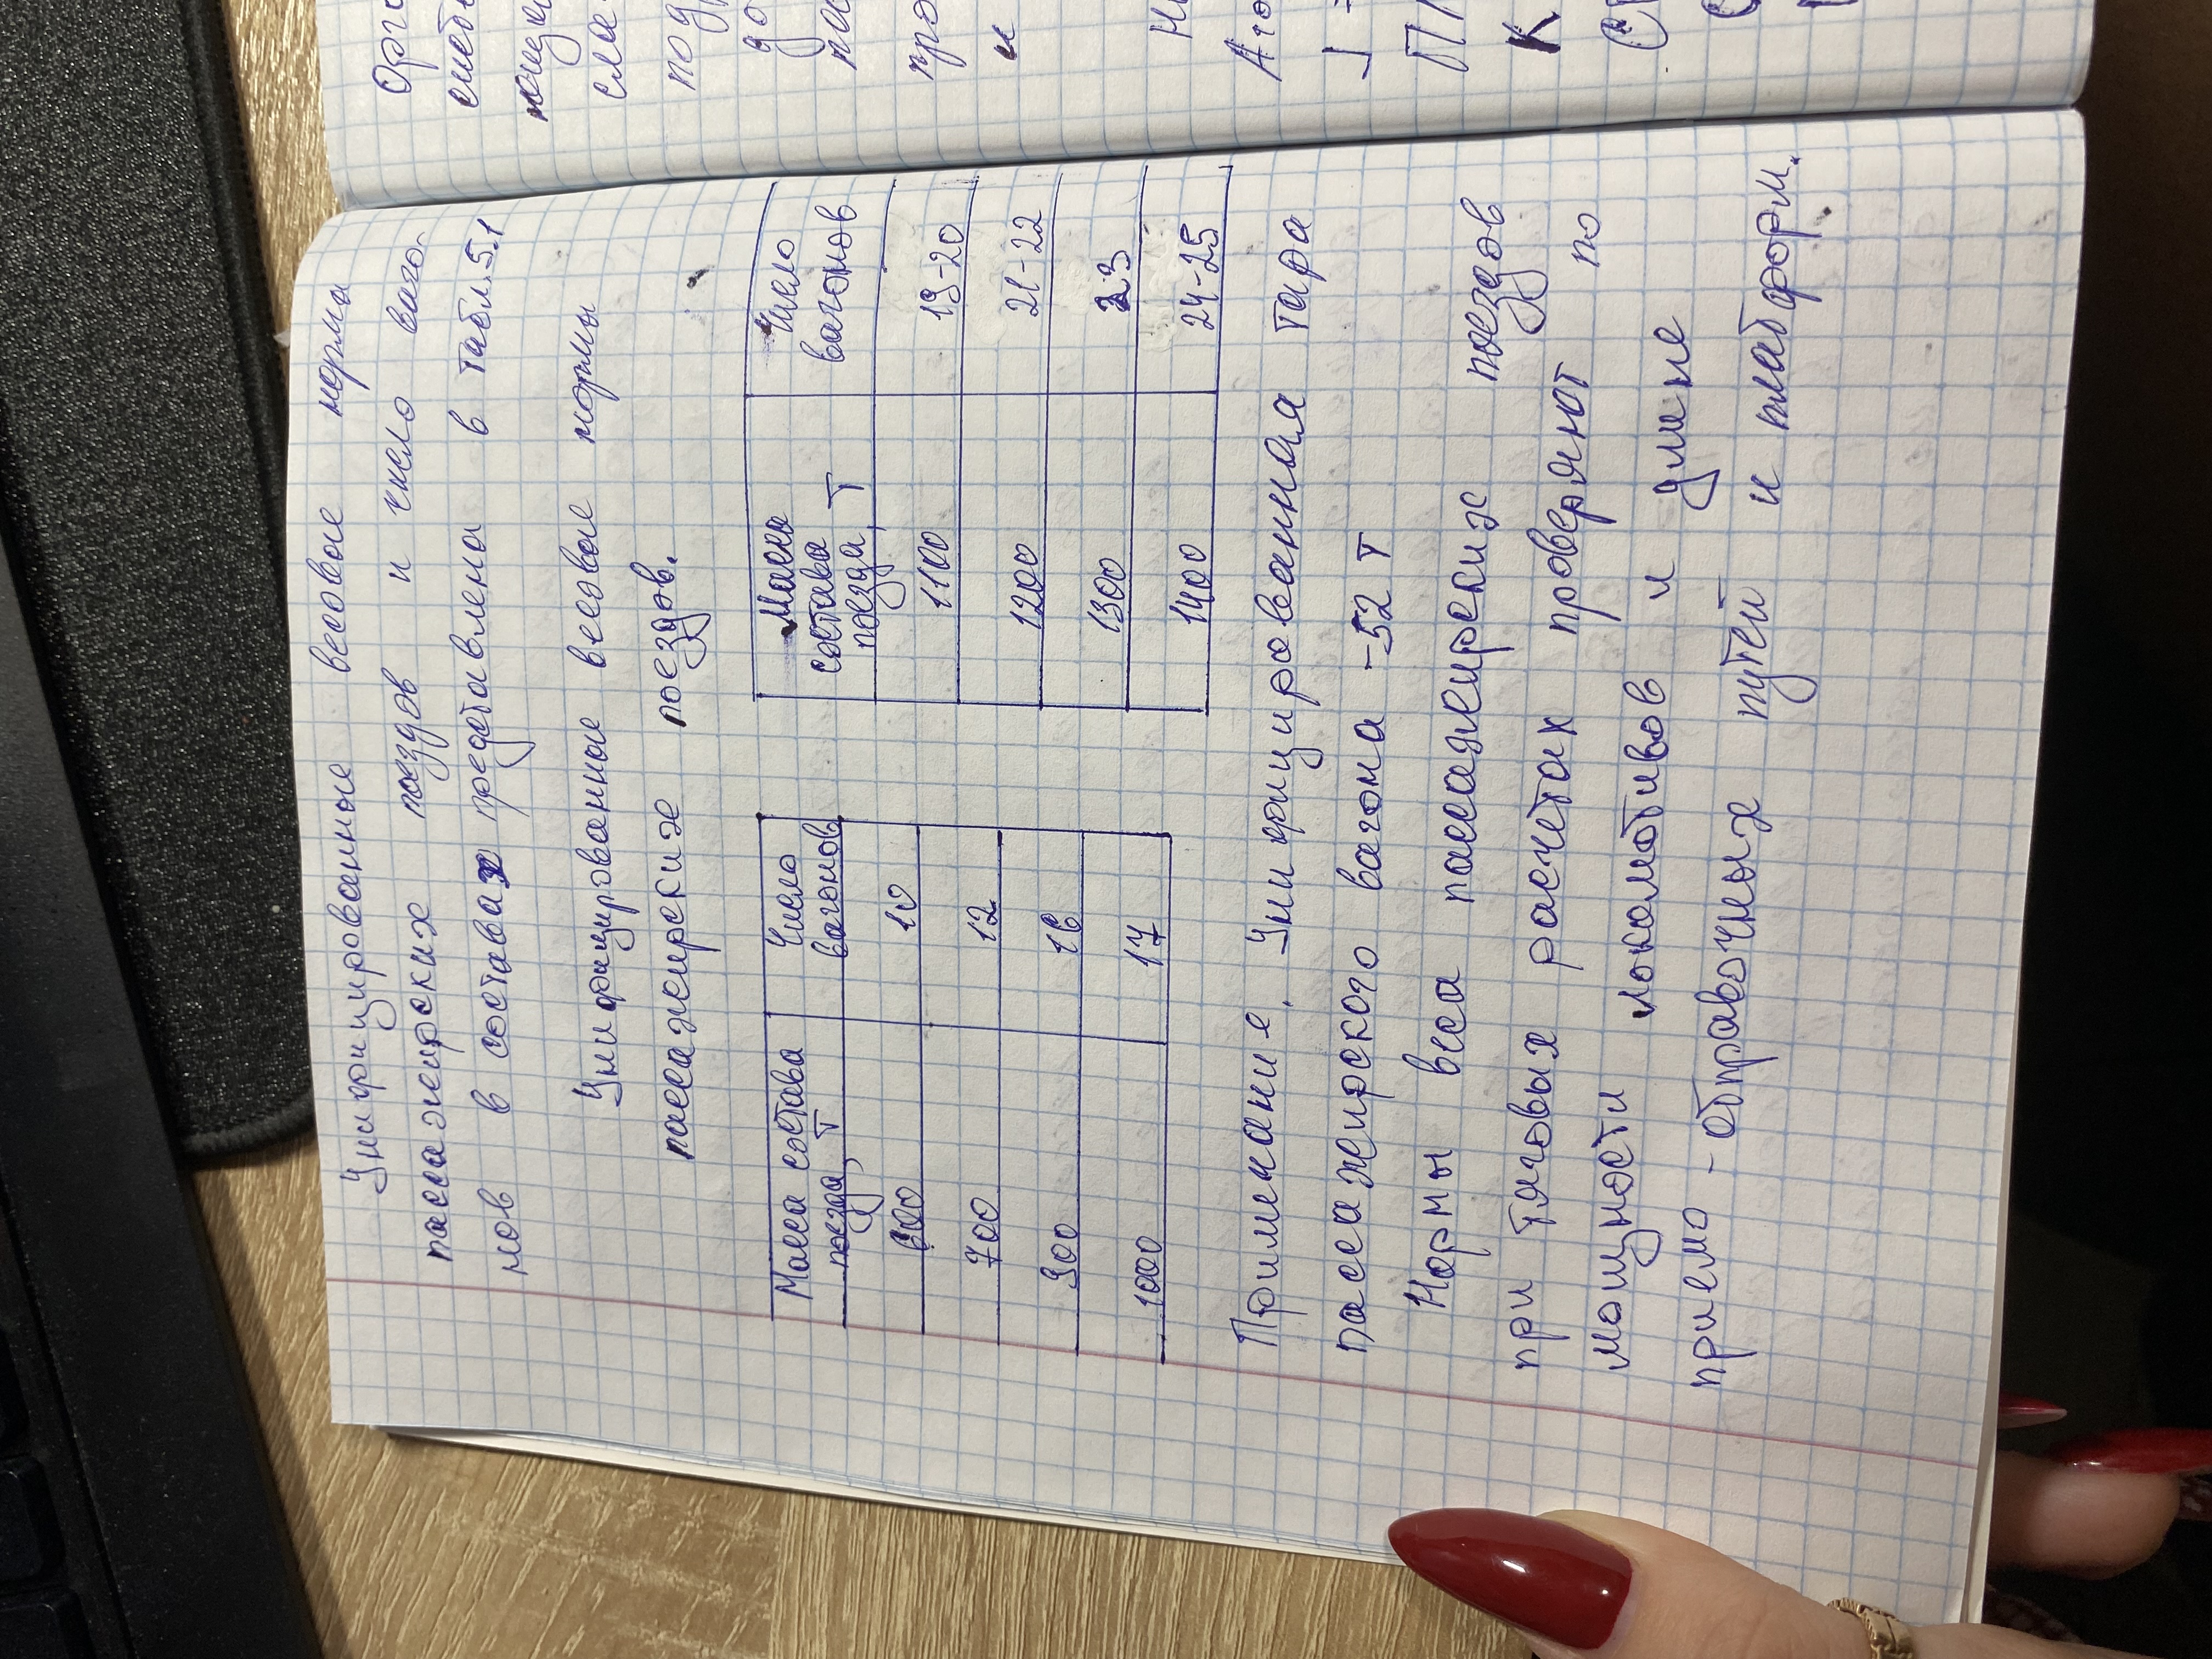 Унифицированные весовые норма
пассажирских поездов и число ваго-
нов в составах представлена в табл.5.1
Унифицированные весовые нормы
пассажирских поездов.
Масса состава поезда, т Число вагонов
600 10
700 12
900 16
1000 17
Масса состава поезда, т Число вагонов
1100 19-20
1200 21-22
1300 23
1400 24-25
Примечание. Унифицированная тара
пассажирского вагона - 52 т
Нормы веса пассажирских поездов
при тяговых расчетах проверяют по
мощности локомотивов и длине
приемо-отправочных путей и платформ.